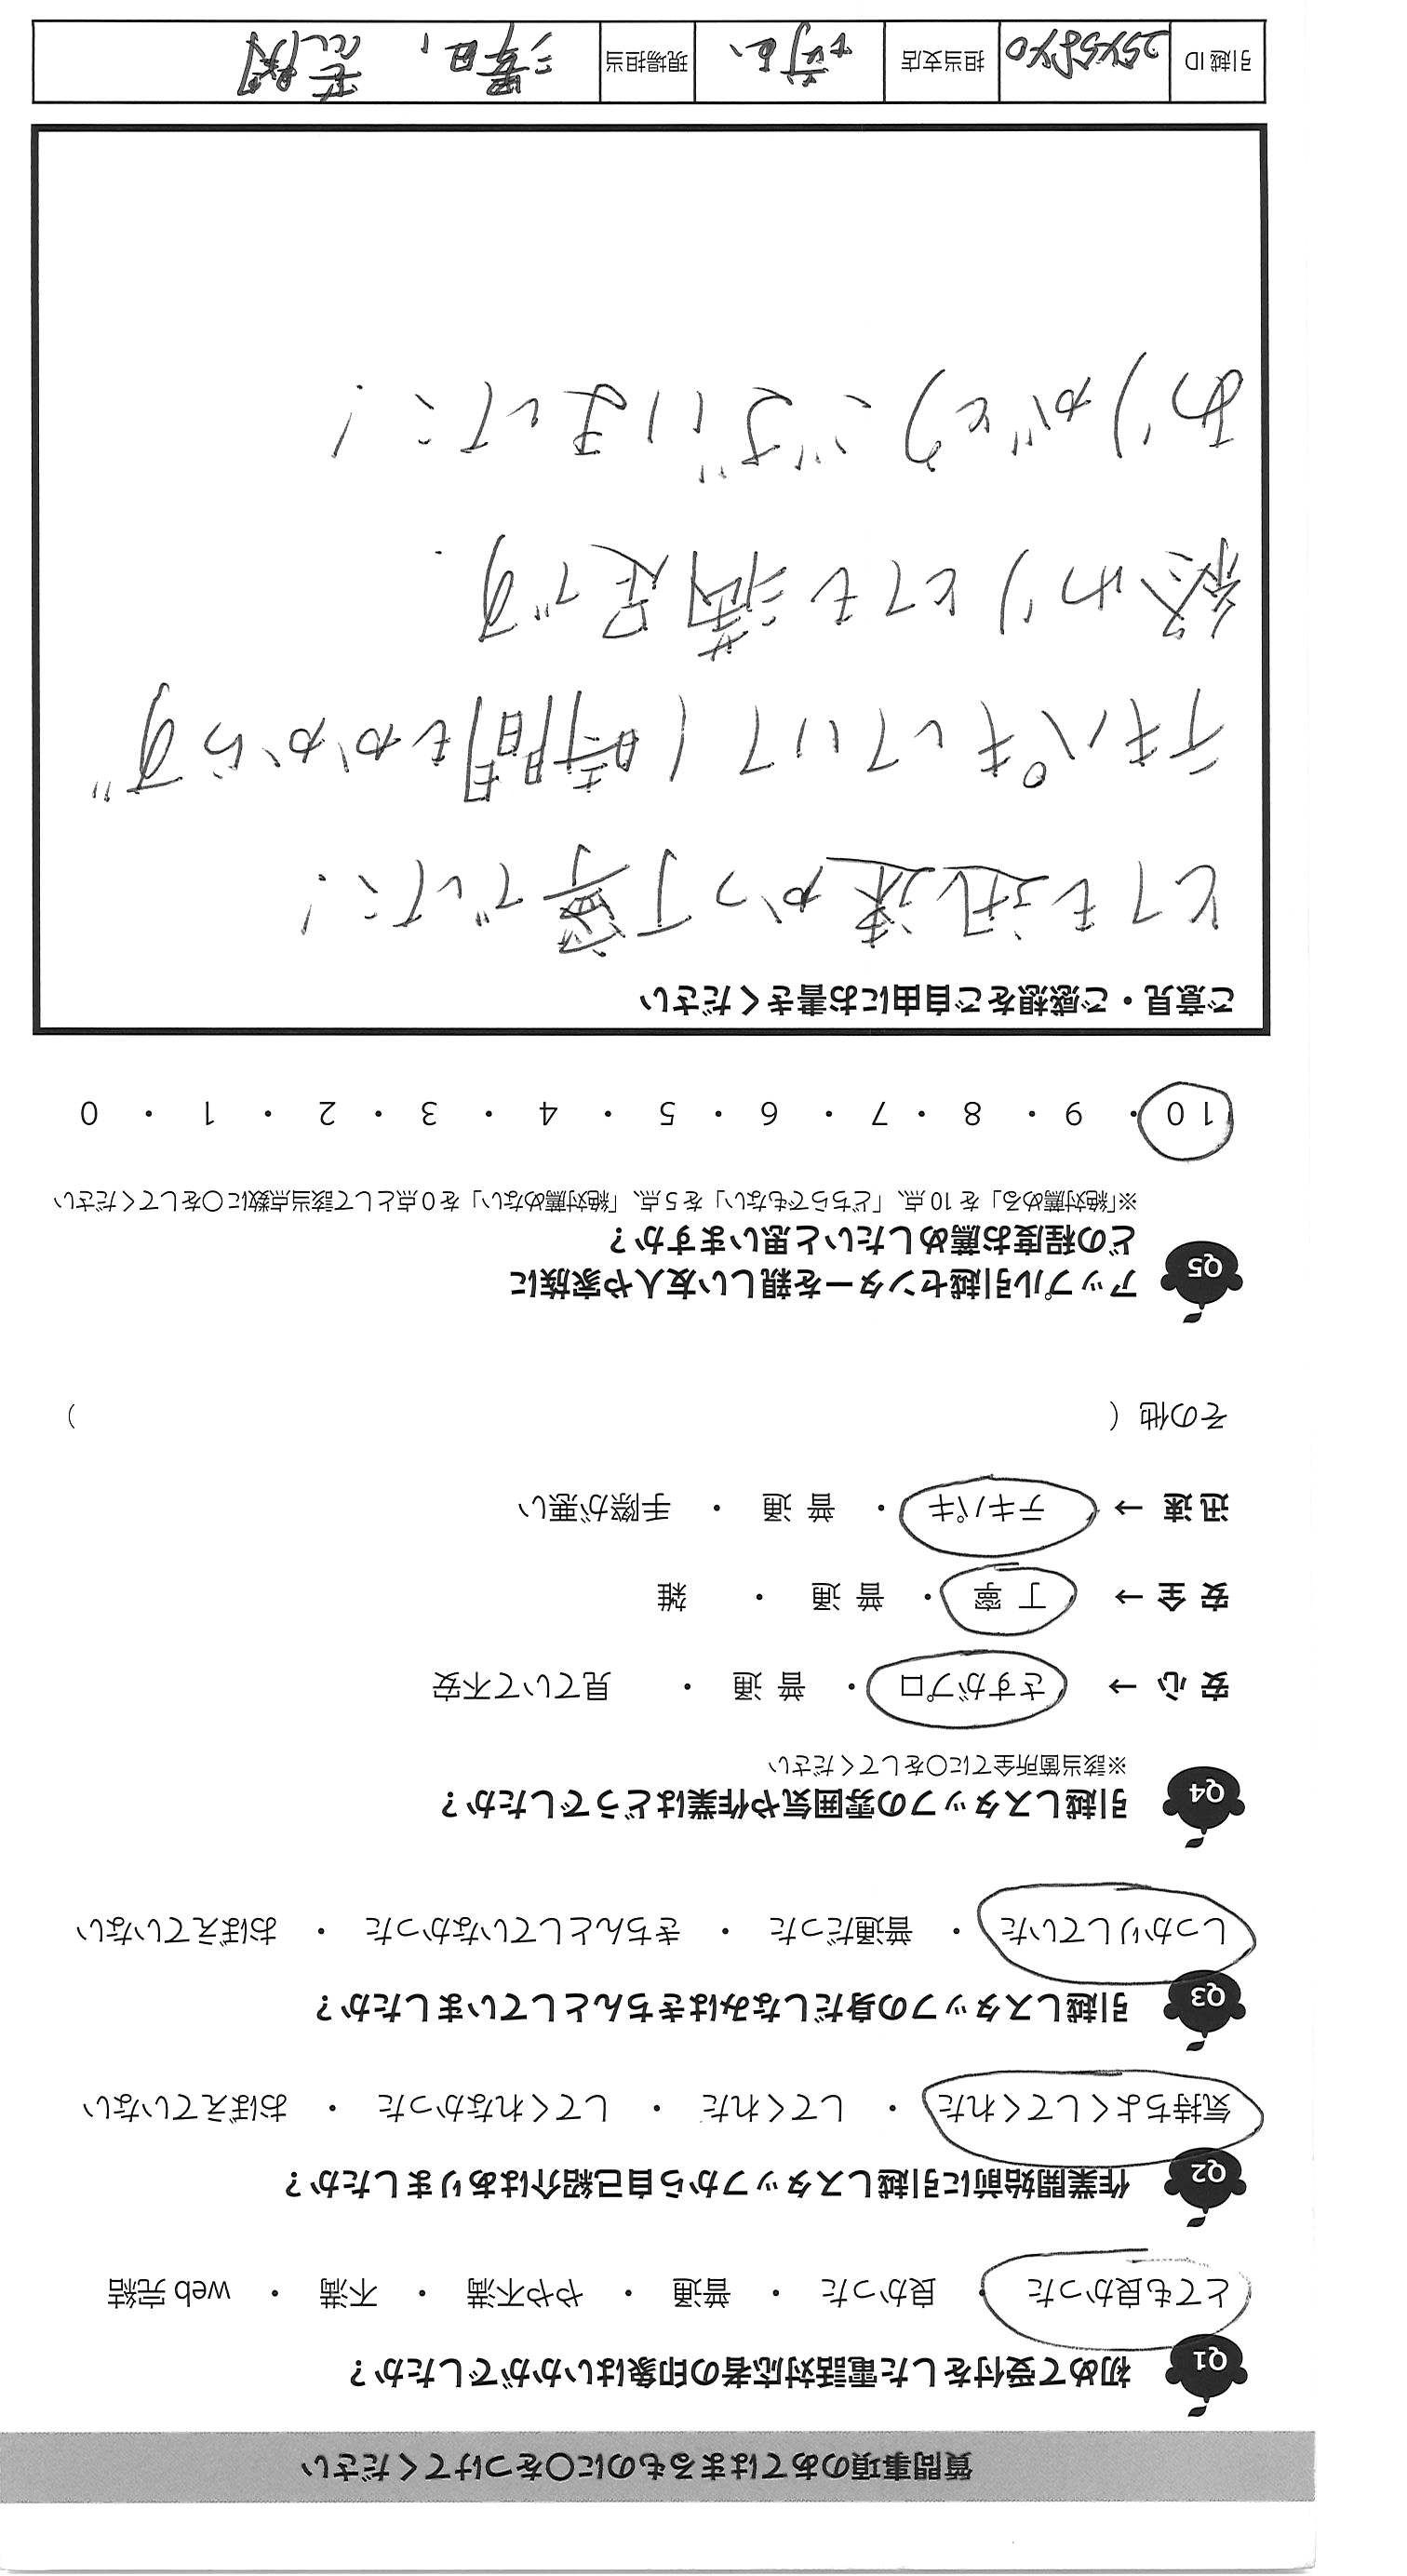 質問事項のあてはまるものに〇をつけてください
Q1 初めて受付をした電話対応者の印象はいかがでしたか？
とても良かった ・ 良かった ・ 普通 ・ やや不満 ・ 不満 ・ web 完結
Q2 作業開始前に引越しスタッフから自己紹介はありましたか？
気持ちよくしてくれた ・ してくれた ・ してくれなかった ・ おぼえていない
Q3 引越しスタッフの身だしなみはきちんとしていましたか？
しっかりしていた ・ 普通だった ・ きちんとしていなかった ・ おぼえていない
Q4 引越しスタッフの雰囲気や作業はどうでしたか？
※該当箇所全てに〇をしてください
安 心 → さすがプロ ・ 普 通 ・ 見ていて不安
安 全 → 丁 寧 ・ 普 通 ・ 雑
迅 速 → テキパキ ・ 普 通 ・ 手際が悪い
その他（ ）
Q5 アップル引越センターを親しい友人や家族に
どの程度お薦めしたいと思いますか？
※「絶対薦める」を 10 点、「どちらでもない」を 5 点、「絶対薦めない」を 0 点として該当点数に〇をしてください
10 ・ 9 ・ 8 ・ 7 ・ 6 ・ 5 ・ 4 ・ 3 ・ 2 ・ 1 ・ 0
ご意見・ご感想をご自由にお書きください
とても迅速かつ丁寧でした！
テキパキしていて1時間もかからず
終わりとても満足です．
ありがとうございました！
引越 ID 担当支店 現場担当